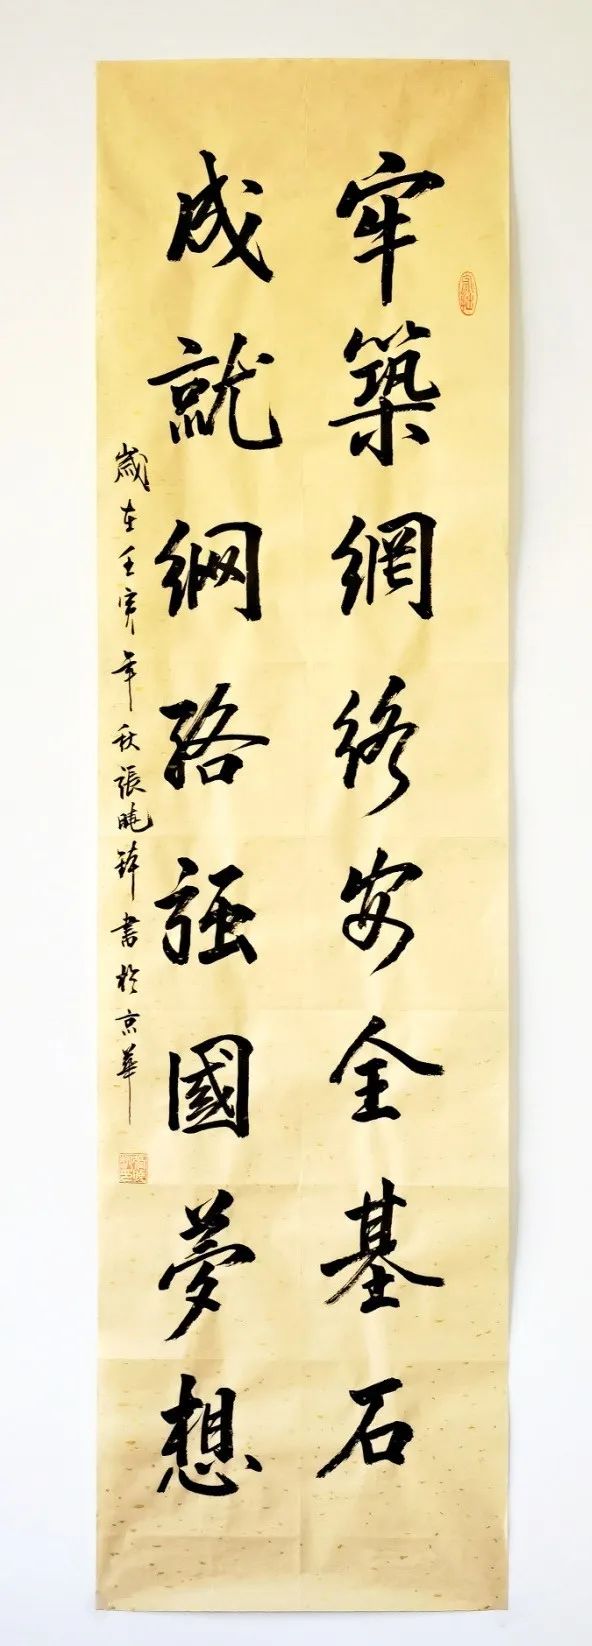 牢築網络安全基石
成就網路强國夢想
歲在壬寅年秋張曉鋒書於京華